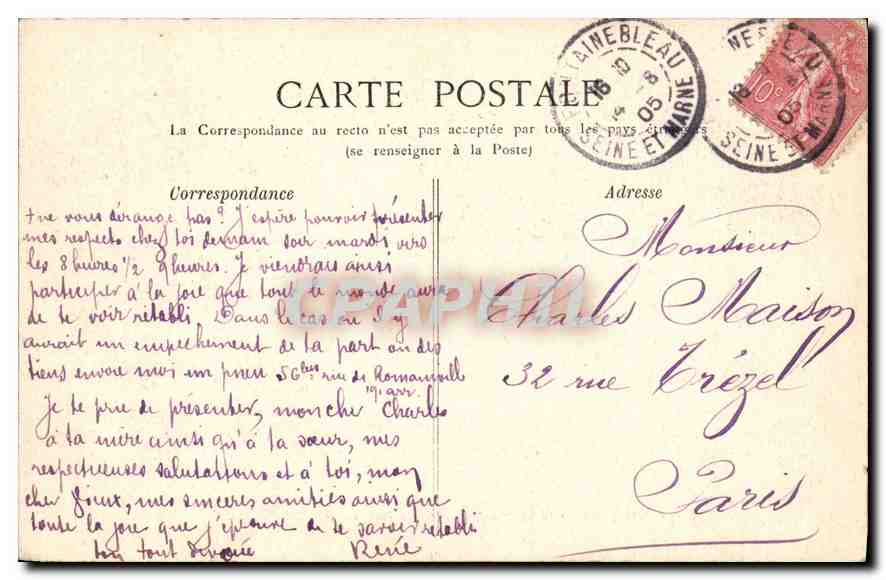 CARTE POSTALE
La Correspondance au recto n'est pas acceptée par tous les pays étrangers
(se renseigner à la Poste)
FONTAINEBLEAU
SEINE ET MARNE
05
SEINE ET MARNE
05
10c
Correspondance
+ ne vous dérange pas? J'espère pouvoir présenter
mes respects chez toi demain soir mardi vers
les 8 heures 1/2 9 heures. Je viendrais ainsi
participer à la joie que tout le monde aura
de te voir rétabli Dans le cas où il y
aurait un empechement de ta part ou des
tiens envoie moi un pneu 56 bis rue de Romainville
19e arr.
Je te prie de présenter, mon cher Charles
à ta mère ainsi qu'à ta sœur, mes
respectueuses salutations et à toi, mon
cher vieux, mes sincères amitiés ainsi que
toute la joie que j'éprouve de te savoir rétabli
ton tout dévoué René
Adresse
Monsieur
Charles Maison
32 rue Trézel
Paris
CPAPHIL